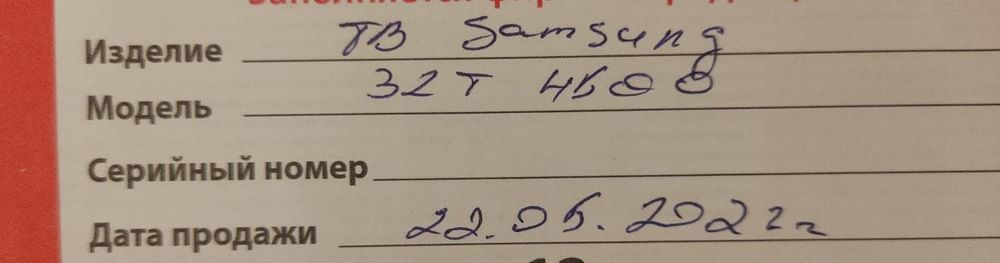 Изделие ТВ Samsung
Модель 32T 4500
Серийный номер
Дата продажи 22.05.2022г